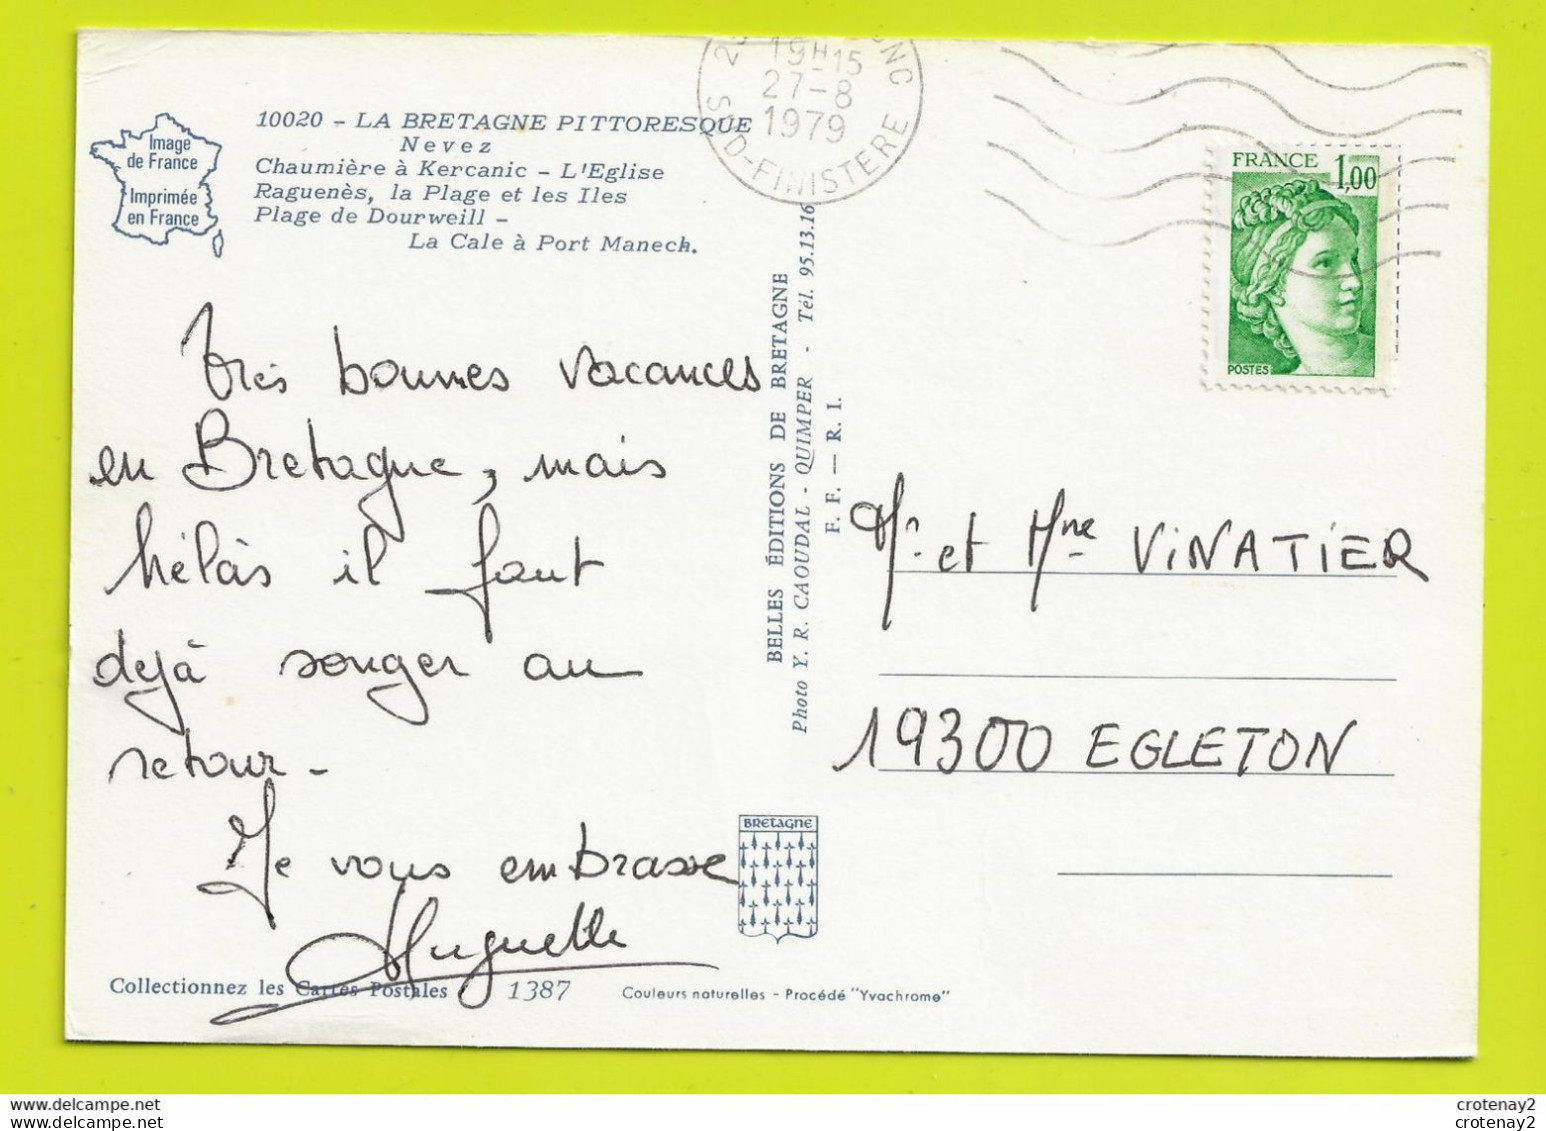 Image
de France
Imprimée
en France
10020 - LA BRETAGNE PITTORESQUE
Nevez
Chaumière à Kercanic - L'Eglise
Raguenès, la Plage et les Iles
Plage de Dourweill -
La Cale à Port Manech.
19H15
27-8
1979
SUD-FINISTERE
FRANCE 1,00
POSTES
Très bonnes vacances
en Bretagne, mais
hélàs il faut
dejà songer au
retour -
Je vous embrasse
Huguette
BELLES ÉDITIONS DE BRETAGNE
Photo Y. R. CAOUDAL - QUIMPER - Tél. 95.13.16
F. F. — R. I.
Mr et Mme VINATIER
19300 EGLETON
BRETAGNE
Collectionnez les Cartes Postales 1387 Couleurs naturelles - Procédé "Yvachrome"
www.delcampe.net
crotenay2
crotenay2